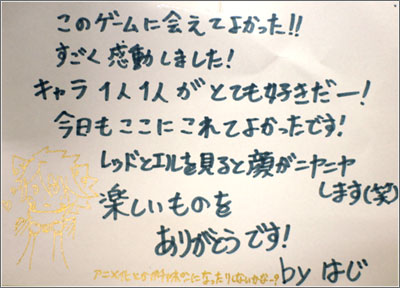 このゲームに会えてよかった!!
すごく感動しました!
キャラ1人1人がとても好きだー!
今日もここにこれてよかったです!
レッドとエルを見ると顔がニヤニヤ
します(笑)
楽しいものを
ありがとうです!
by はじ
アニメ化とか になったりしないかなー?